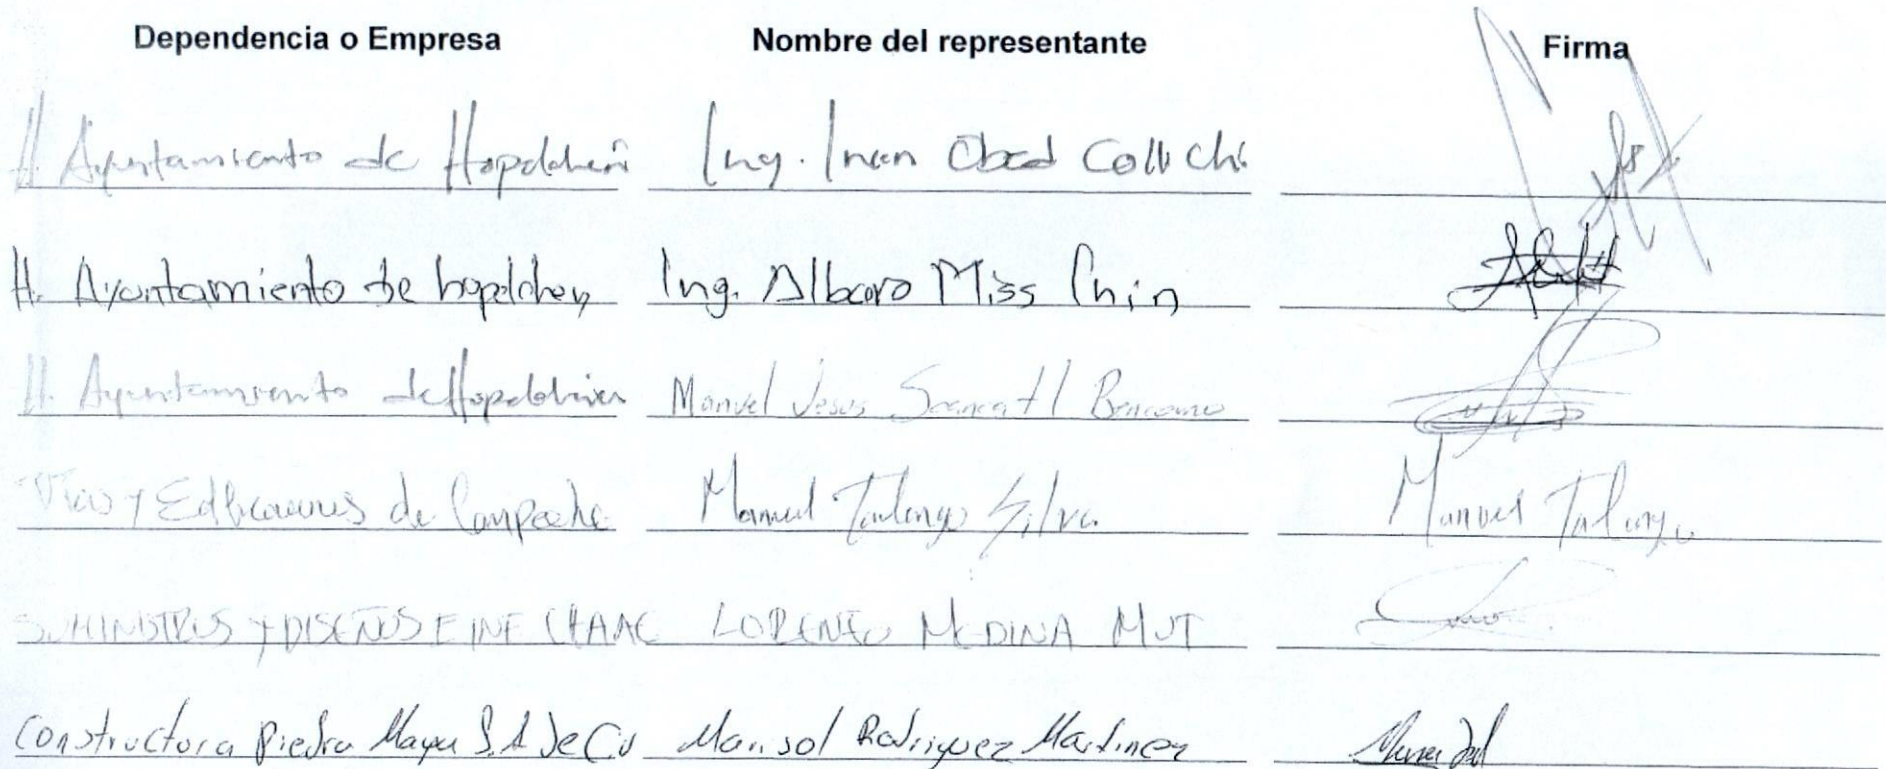 Dependencia o Empresa Nombre del representante Firma
H. Ayuntamiento de Hopelchen Ing. Obed Coll Chi
H. Ayontamiento de hopelchen Ing. Albaro Miss Chin
H. Ayuntamiento de Hopelchen Manuel Jesus Bencomo
Vias y Edificaciones de Campeche Manuel Talango Silva Manuel Talango
SUMINISTROS Y DISEÑOS E INF CHAAC LORENZO MEDINA MUT
Constructora Piedra Maya S.A de Cv Marisol Rodriguez Martinez